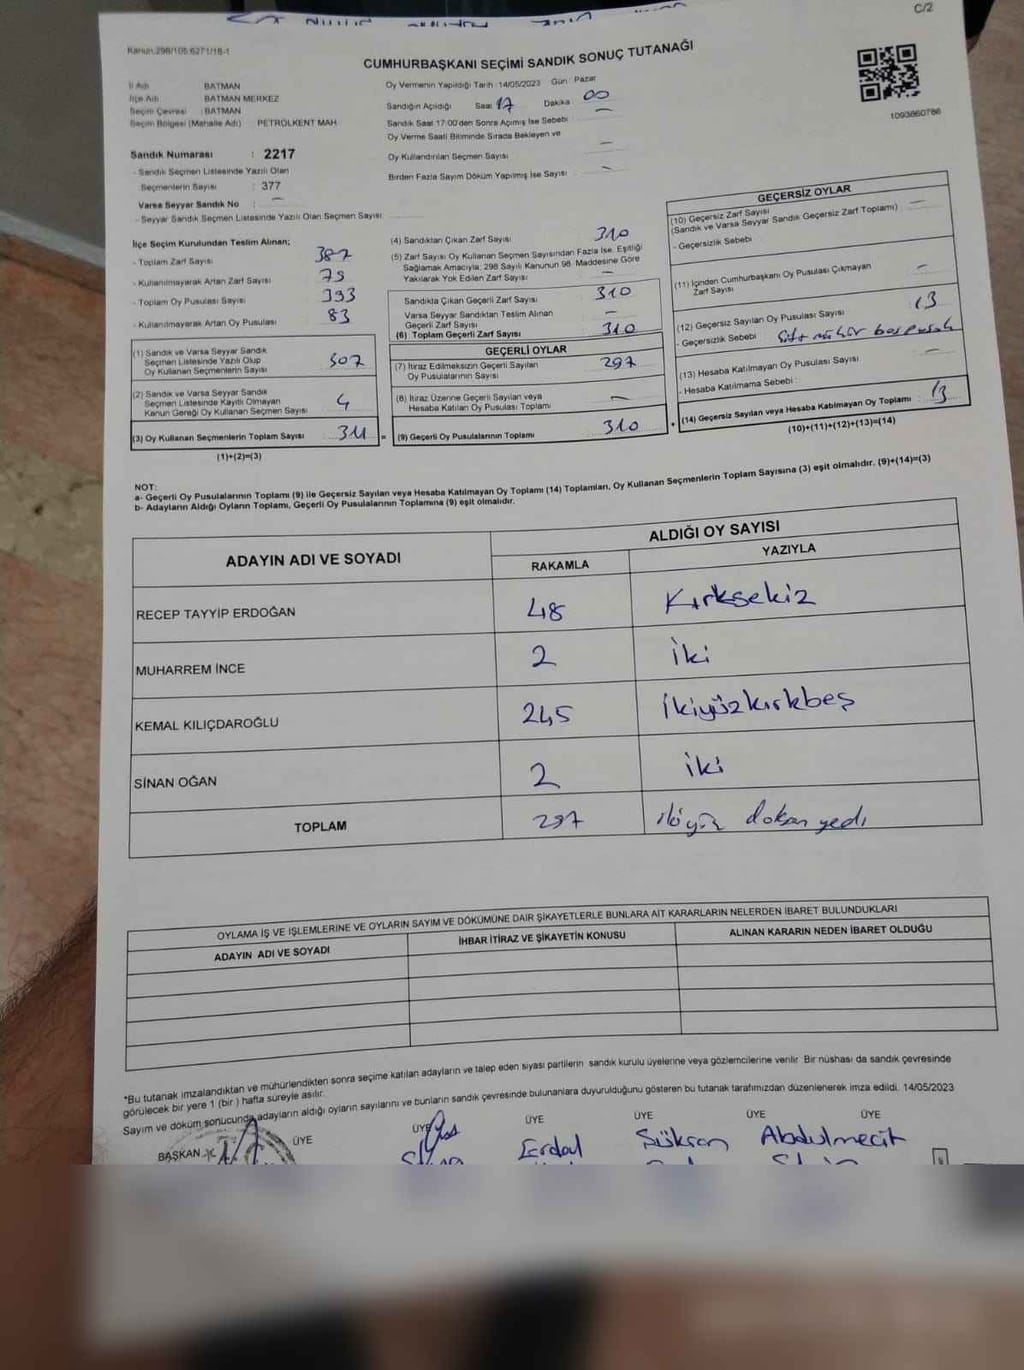 C/2
Kanun:298/105;6271/18-1
CUMHURBAŞKANI SEÇİMİ SANDIK SONUÇ TUTANAĞI
İl Adı BATMAN
İlçe Adı BATMAN MERKEZ
Seçim Çevresi : BATMAN
Seçim Bölgesi (Mahalle Adı) : PETROLKENT MAH
Sandık Numarası : 2217
- Sandık Seçmen Listesinde Yazılı Olan
Seçmenlerin Sayısı : 377
Varsa Seyyar Sandık No : —
- Seyyar Sandık Seçmen Listesinde Yazılı Olan Seçmen Sayısı
Oy Vermenin Yapıldığı Tarih 14/05/2023 Gün : Pazar
Sandığın Açıldığı Saat 17 Dakika 00
Sandık Saat 17:00'den Sonra Açımış İse Sebebi : —
Oy Verme Saati Bitiminde Sırada Bekleyen ve
Oy Kullandırılan Seçmen Sayısı —
Birden Fazla Sayım Döküm Yapılmış İse Sayısı —
1093860786
İlçe Seçim Kurulundan Teslim Alınan;
- Toplam Zarf Sayısı 387
- Kullanılmayarak Artan Zarf Sayısı
- Toplam Oy Pusulası Sayısı 393
- Kullanılmayarak Artan Oy Pusulası 83
(1) Sandık ve Varsa Seyyar Sandık
Seçmen Listesinde Yazılı Olup
Oy Kullanan Seçmenlerin Sayısı 307
(2) Sandık ve Varsa Seyyar Sandık
Seçmen Listesinde Kayıtlı Olmayan
Kanun Gereği Oy Kullanan Seçmen Sayısı 4
(3) Oy Kullanan Seçmenlerin Toplam Sayısı 311 =
(1)+(2)=(3)
(4) Sandıktan Çıkan Zarf Sayısı 310
(5) Zarf Sayısı Oy Kullanan Seçmen Sayısından Fazla İse, Eşitliği
Sağlamak Amacıyla; 298 Sayılı Kanunun 98. Maddesine Göre
Yakılarak Yok Edilen Zarf Sayısı —
Sandıkta Çıkan Geçerli Zarf Sayısı 310
Varsa Seyyar Sandıktan Teslim Alınan
Geçerli Zarf Sayısı —
(6) Toplam Geçerli Zarf Sayısı 310
GEÇERLİ OYLAR
(7) İtiraz Edilmeksizin Geçerli Sayılan
Oy Pusulalarının Sayısı 297
(8) İtiraz Üzerine Geçerli Sayılan veya
Hesaba Katılan Oy Pusulası Toplamı —
(9) Geçerli Oy Pusulalarının Toplamı 310 +
GEÇERSİZ OYLAR
(10) Geçersiz Zarf Sayısı
(Sandık ve Varsa Seyyar Sandık Geçersiz Zarf Toplamı) —
- Geçersizlik Sebebi :
(11) İçinden Cumhurbaşkanı Oy Pusulası Çıkmayan
Zarf Sayısı —
(12) Geçersiz Sayılan Oy Pusulası Sayısı 13
- Geçersizlik Sebebi mühür
(13) Hesaba Katılmayan Oy Pusulası Sayısı —
- Hesaba Katılmama Sebebi :
(14) Geçersiz Sayılan veya Hesaba Katılmayan Oy Toplamı 13
(10)+(11)+(12)+(13)=(14)
NOT:
a- Geçerli Oy Pusulalarının Toplamı (9) ile Geçersiz Sayılan veya Hesaba Katılmayan Oy Toplamı (14) Toplamları, Oy Kullanan Seçmenlerin Toplam Sayısına (3) eşit olmalıdır. (9)+(14)=(3)
b- Adayların Aldığı Oyların Toplamı, Geçerli Oy Pusulalarının Toplamına (9) eşit olmalıdır.
ADAYIN ADI VE SOYADI ALDIĞI OY SAYISI
RAKAMLA YAZIYLA
RECEP TAYYİP ERDOĞAN 48 Kırksekiz
MUHARREM İNCE 2 İki
KEMAL KILIÇDAROĞLU 245 İkiyüzkırkbeş
SİNAN OĞAN 2 iki
TOPLAM 297 ikiyüz doksan yedi
OYLAMA İŞ VE İŞLEMLERİNE VE OYLARIN SAYIM VE DÖKÜMÜNE DAİR ŞİKAYETLERLE BUNLARA AİT KARARLARIN NELERDEN İBARET BULUNDUKLARI
ADAYIN ADI VE SOYADI İHBAR İTİRAZ VE ŞİKAYETİN KONUSU ALINAN KARARIN NEDEN İBARET OLDUĞU
*Bu tutanak imzalandıktan ve mühürlendikten sonra seçime katılan adayların ve talep eden siyasi partilerin sandık kurulu üyelerine veya gözlemcilerine verilir. Bir nüshası da sandık çevresinde
görülecek bir yere 1 (bir) hafta süreyle asılır.
Sayım ve döküm sonucunda adayların aldığı oyların sayılarını ve bunların sandık çevresinde bulunanlara duyurulduğunu gösteren bu tutanak tarafımızdan düzenlenerek imza edildi. 14/05/2023
BAŞKAN ÜYE ÜYE ÜYE ÜYE ÜYE ÜYE
Erdal Şükran Abdulmecit